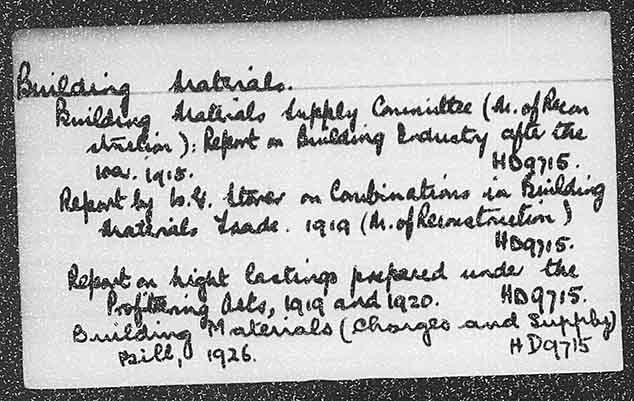 Building Materials.
Building Materials Supply Committee (M. of Recon
struction): Report on Building Industry after the
war. 1918. HD9715.
Report by W. E. Stover on Combinations in Building
Materials Trade. 1919 (M. of Reconstruction)
HD9715.
Report on Light Castings prepared under the
Profiteering Acts, 1919 and 1920. HD9715.
Building Materials (Charges and Supply)
Bill, 1926. HD9715